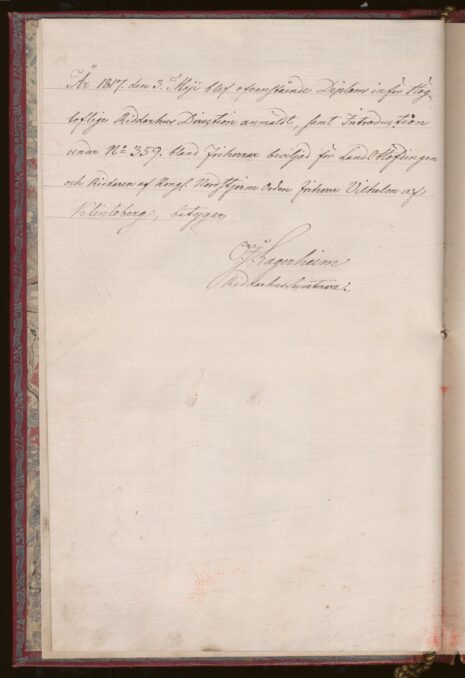 År 1817. den 3. Maji blef ofvanstående Diplom inför Hög-
loflige Ridderhus Direction anmäldt, samt Introduction
under No 359. bland Friherrar beviljad för Lands Höfdingen
och Riddaren af Kongl. Nordstjerne Orden Friherre Vilhelm af
Klinteberg, betygar
Lagerheim
Ridderhus Secreterare.